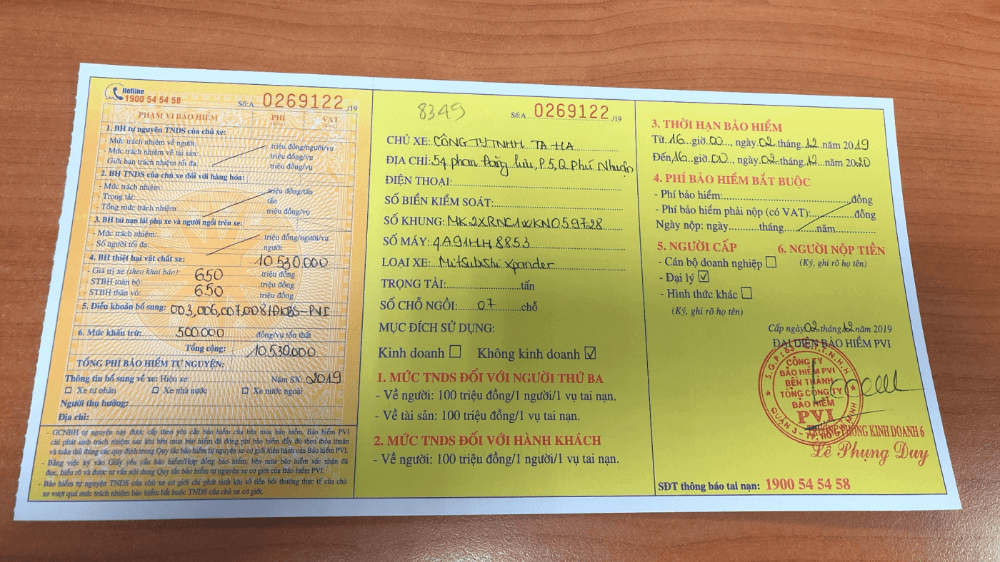 Hotline
1900 54 54 58
Số:A 0269122 /19
PHẠM VI BẢO HIỂM PHÍ VAT
1. BH tự nguyện TNDS của chủ xe:
- Mức trách nhiệm về người: triệu đồng/người/vụ
- Mức trách nhiệm về tài sản: triệu đồng/vụ
- Giới hạn trách nhiệm tối đa: triệu đồng/vụ
2. BH TNDS của chủ xe đối với hàng hóa:
- Mức trách nhiệm: triệu đồng/tấn
- Trọng tải: tấn
- Tổng mức trách nhiệm: triệu đồng/vụ
3. BH tai nạn lái phụ xe và người ngồi trên xe:
- Mức trách nhiệm: triệu đồng/người/vụ
- Số người tối đa: người
4. BH thiệt hại vật chất xe: 10530000
- Giá trị xe (theo khai báo): 650 triệu đồng
- STBH toàn bộ: triệu đồng
- STBH thân vỏ: 650 triệu đồng
5. Điều khoản bổ sung: 003,006,007,008/ĐKBS-PVI
6. Mức khấu trừ: 500.000 đồng/vụ tổn thất
Tổng cộng: 10.530.000
TỔNG PHÍ BẢO HIỂM TỰ NGUYỆN:
Thông tin bổ sung về xe: Hiệu xe: Năm SX: 2019
Xe tư nhân Xe nhà nước Xe nước ngoài
Người thụ hưởng:
Địa chỉ:
- GCNBH tự nguyện này được cấp theo yêu cầu bảo hiểm của bên mua bảo hiểm. Bảo hiểm PVI
chỉ phát sinh trách nhiệm sau khi bên mua bảo hiểm đã đóng phí bảo hiểm đầy đủ theo thỏa thuận
và tuân thủ đúng các quy định trong Quy tắc bảo hiểm tự nguyện xe cơ giới hiện hành của Bảo hiểm PVI.
- Bằng việc ký vào Giấy yêu cầu bảo hiểm/Hợp đồng bảo hiểm, bên mua bảo hiểm xác nhận đã
đọc, hiểu rõ và được tư vấn nội dung Quy tắc bảo hiểm tự nguyện xe cơ giới của Bảo hiểm PVI.
- Bảo hiểm tự nguyện TNDS của chủ xe cơ giới chỉ phát sinh khi số tiền bồi thường thực tế của chủ
xe vượt quá mức trách nhiệm bảo hiểm bắt buộc TNDS của chủ xe cơ giới.
8349
Số:A 0269122 /19
CHỦ XE: CÔNG TY TNHH TA HA
ĐỊA CHỈ: 54 phan Đăng Lưu, P.5, Q. Phú Nhuận
ĐIỆN THOẠI:
SỐ BIỂN KIỂM SOÁT:
SỐ KHUNG: MK2XRNC1WKN059728
SỐ MÁY: 4A91HH8853
LOẠI XE: Mitsubishi xpander
TRỌNG TẢI: tấn
SỐ CHỖ NGỒI: 07 chỗ
MỤC ĐÍCH SỬ DỤNG:
Kinh doanh Không kinh doanh
1. MỨC TNDS ĐỐI VỚI NGƯỜI THỨ BA
- Về người: 100 triệu đồng/1 người/1 vụ tai nạn.
- Về tài sản: 100 triệu đồng/1 vụ tai nạn.
2. MỨC TNDS ĐỐI VỚI HÀNH KHÁCH
- Về người: 100 triệu đồng/1 người/1 vụ tai nạn.
3. THỜI HẠN BẢO HIỂM
Từ 16 giờ 00, ngày 02 tháng 12 năm 2019
Đến 16 giờ 00, ngày 02 tháng 12 năm 2020
4. PHÍ BẢO HIỂM BẮT BUỘC
- Phí bảo hiểm: đồng
- Phí bảo hiểm phải nộp (có VAT): đồng
Ngày nộp: ngày tháng năm
5. NGƯỜI CẤP 6. NGƯỜI NỘP TIỀN
- Cán bộ doanh nghiệp (Ký, ghi rõ họ tên)
- Đại lý
- Hình thức khác
(Ký, ghi rõ họ tên)
Cấp ngày 02 tháng 12 năm 2019
ĐẠI DIỆN BẢO HIỂM PVI
CÔNG TY
BẢO HIỂM PVI
BẾN THÀNH
TỔNG CÔNG TY
BẢO HIỂM
PVI
TRƯỞNG PHÒNG KINH DOANH 6
Lê Phụng Duy
SĐT thông báo tai nạn: 1900 54 54 58